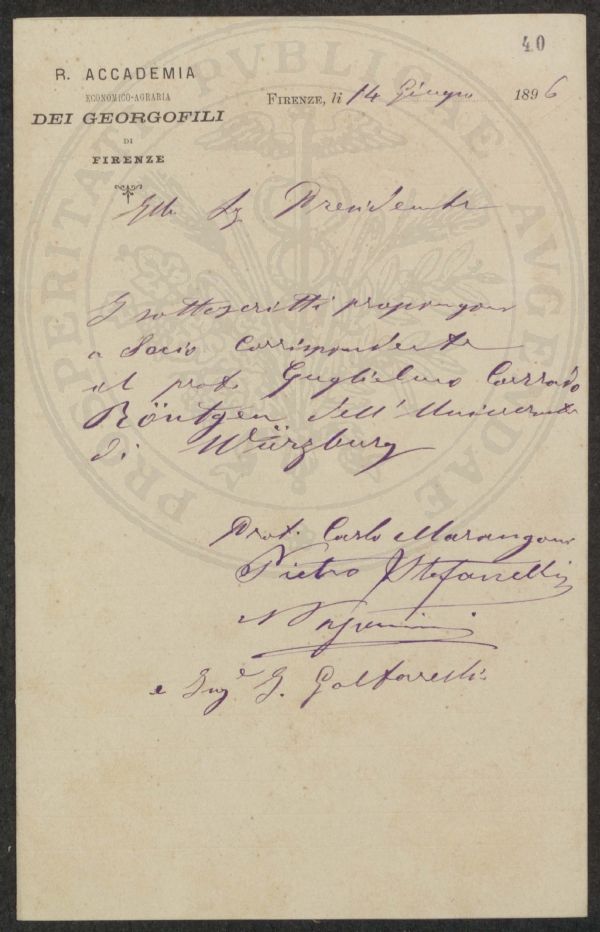 40
R. ACCADEMIA
ECONOMICO-AGRARIA
DEI GEORGOFILI
DI
FIRENZE
FIRENZE, li 14 Giugno 1896
PROSPERITATI PVBLICAE AVGENDAE
Presidente
I sottoscritti propongono
a Socio Corrispondente
il prof. Guglielmo Corrado
Röntgen dell'Università
di Würzburg
Prof. Carlo Marangoni
Pietro Stefanelli
e Ing.e G.